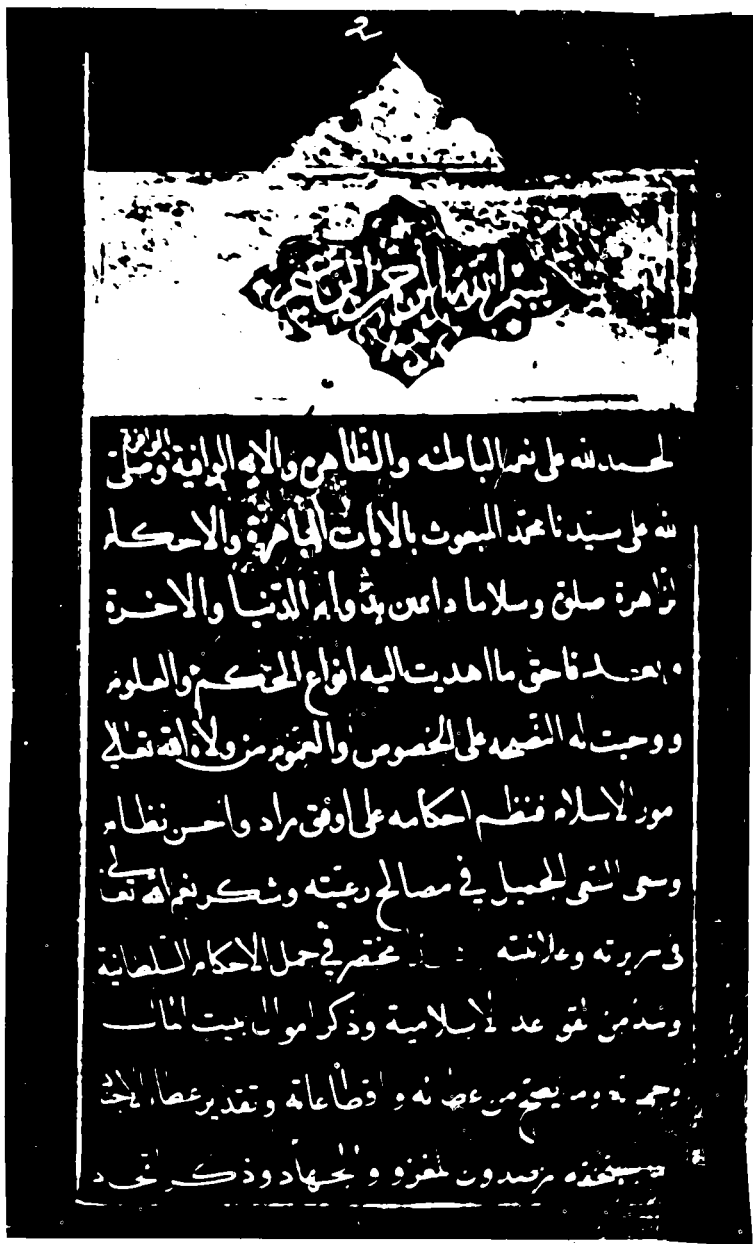 2
بسم الله الرحمن الرحيم
لحمد لله على نعمه الباطنه والظاهره والايه الوافية الوافرة وصلى
لله على سيدنا محمد المبعوث بالايات الباهرة والاحكام
لزاهرة صلوة وسلاما دائمين بدوام الدنيا والاخرة
وبعد فاحق ما اهديت اليه انواع الحكم والعلوم
ووجبت له النصيحه على الخصوص والعموم من ولاه الله تعالى
مور الاسلام فنظم احكامه على اوفق مراد واحسن نظام
وسعى السعى الجميل في مصالح رعيته وشكر نعم الله تعالى
فى سريرته وعلانيته مختصر في جمل الاحكام السلطانية
من لقو عد لاسلامية وذكر اموال بيت المال
وجهاته وما يصح من عطائه و اقطاعاته وتقدير عطاء الاجناد
يرصدون لغزو والجهاد وذكر